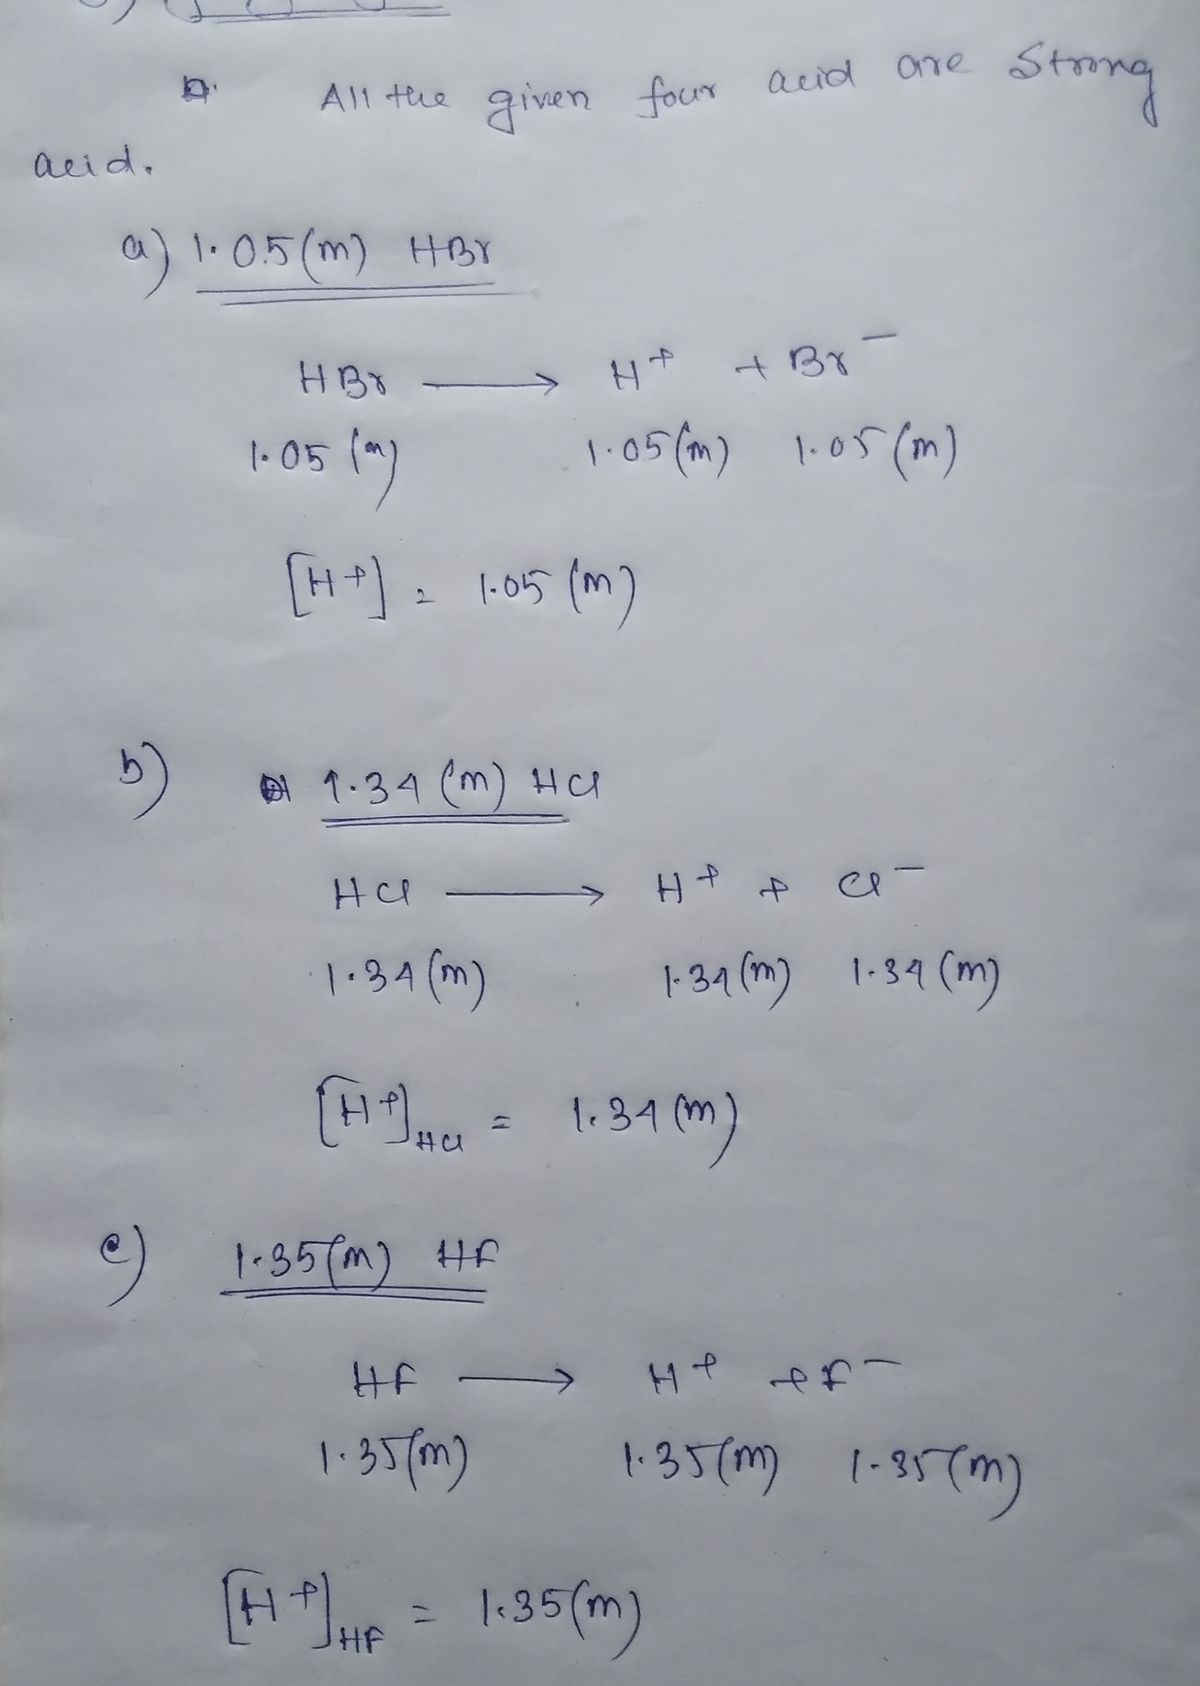 All the given four acid are Strong
acid.
a) 1.05 (m) HBr
HBr ⟶ H⁺ + Br⁻
1.05 (m) 1.05 (m) 1.05 (m)
[H⁺] = 1.05 (m)
b) 1.34 (m) HCl
HCl ⟶ H⁺ + Cl⁻
1.34 (m) 1.34 (m) 1.34 (m)
[H⁺]HCl = 1.34 (m)
c) 1.35 (m) HF
HF ⟶ H⁺ + F⁻
1.35 (m) 1.35 (m) 1.35 (m)
[H⁺]HF = 1.35 (m)